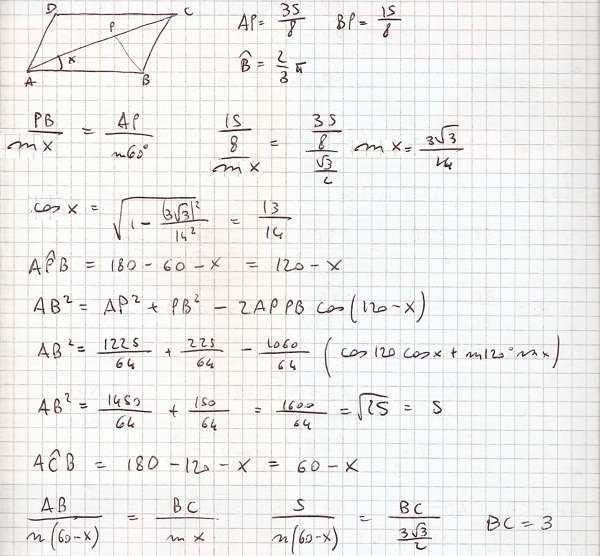 D C P A x B
AP = 35/8 BP = 15/8
B̂ = 2/3 π
PB/mx = AP/m60° 15/8/mx = 35/8/√3/2 mx = 3√3/14
cos x = √1 - (3√3)²/14² = 13/14
AP̂B = 180 - 60 - x = 120 - x
AB² = AP² + PB² - 2APPB cos(120 - x)
AB² = 1225/64 + 225/64 - 1060/64 (cos120 cosx + m120° mx)
AB² = 1450/64 + 150/64 = 1600/64 = √25 = 5
AĈB = 180 - 120 - x = 60 - x
AB/n(60-x) = BC/mx 5/n(60-x) = BC/3√3/2 BC = 3